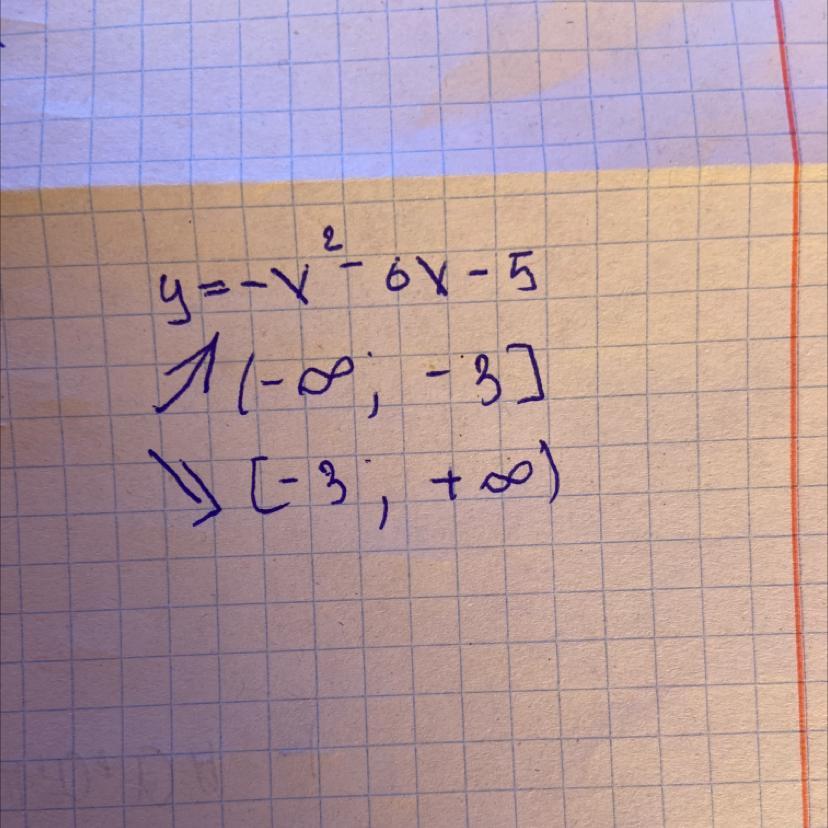 y = -x² - 6x - 5
↗ (-∞; -3]
↘ [-3; +∞)